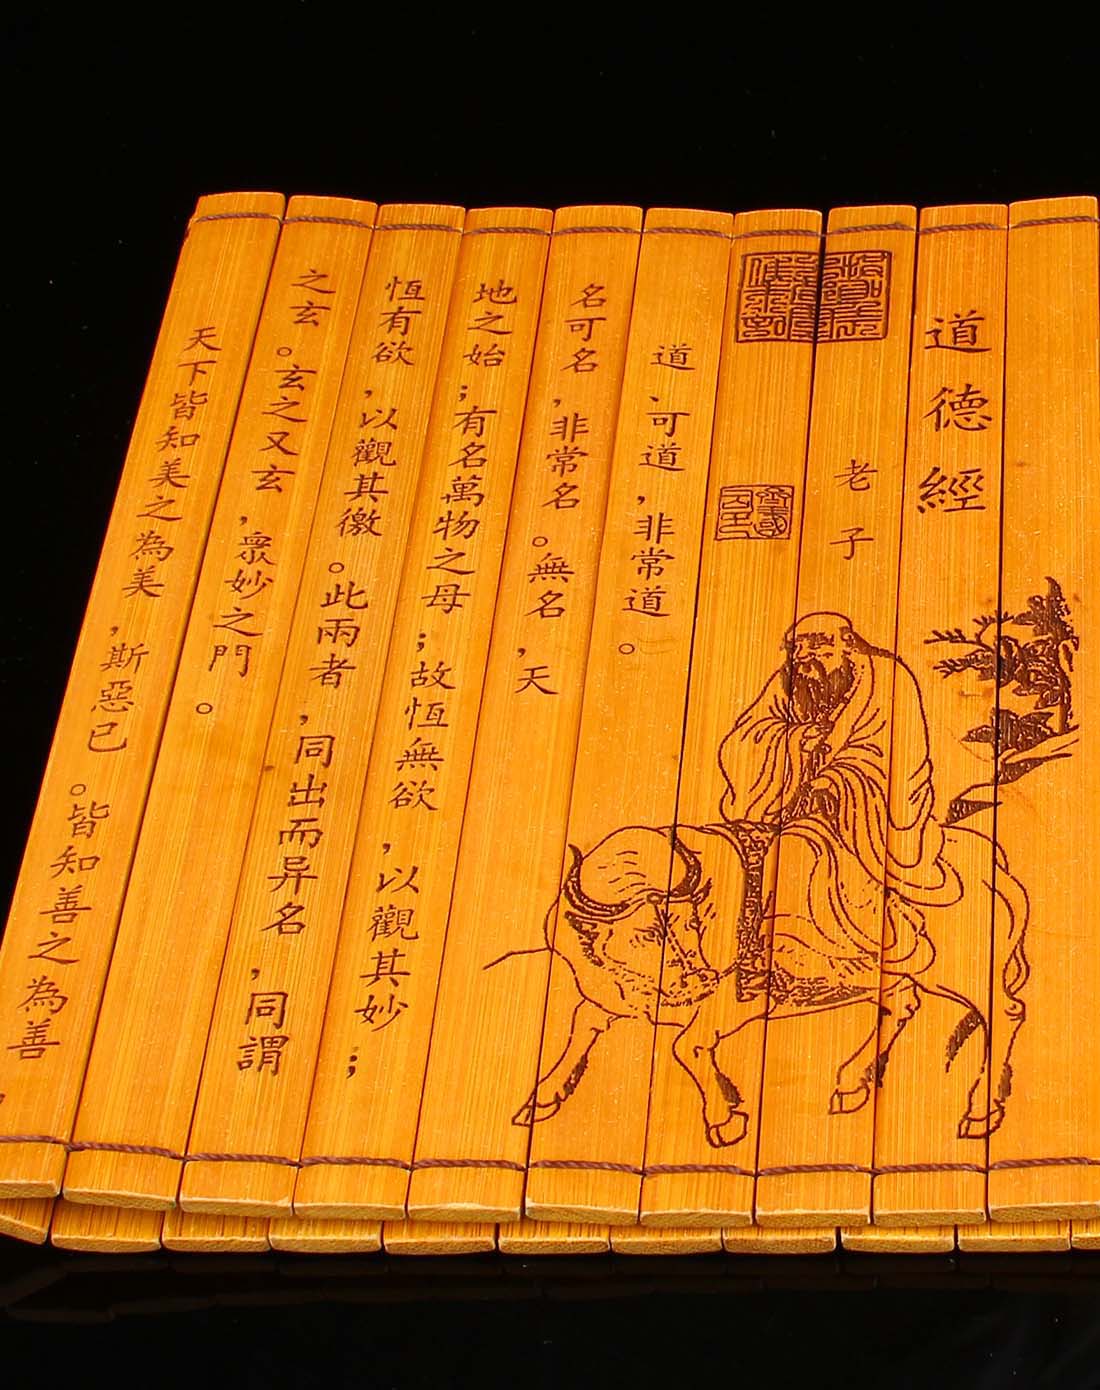 道德經
老子
道、可道,非常道。
名可名,非常名。無名,天
地之始;有名萬物之母;故恆無欲,以觀其妙;
恆有欲,以觀其徼。此兩者,同出而异名,同謂
之玄。玄之又玄,衆妙之門。
天下皆知美之為美,斯惡已。皆知善之為善,